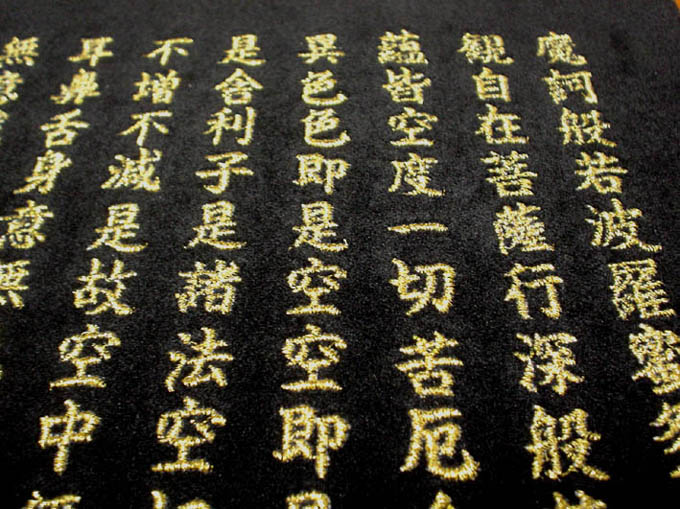 魔訶般若波羅蜜
觀自在菩薩行深般
蘊皆空度一切苦厄
異色色即是空空即是
是舍利子是諸法空
不增不減是故空中
耳鼻舌身意無
無意